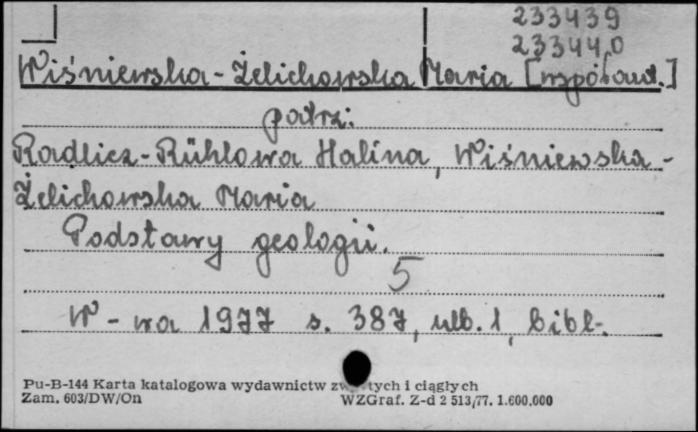 233439
233440
Wiśniewska-Żelichowska Maria [współaut.]
patrz:
Radlicz-Rühlowa Halina, Wiśniewska-
Żelichowska Maria
Podstawy geologii.
5
W-wa 1977 s. 387, nlb. 1, bibl.
Pu-B-144 Karta katalogowa wydawnictw zwartych i ciągłych
Zam. 603/DW/On WZGraf. Z-d 2 513/77. 1.600.000